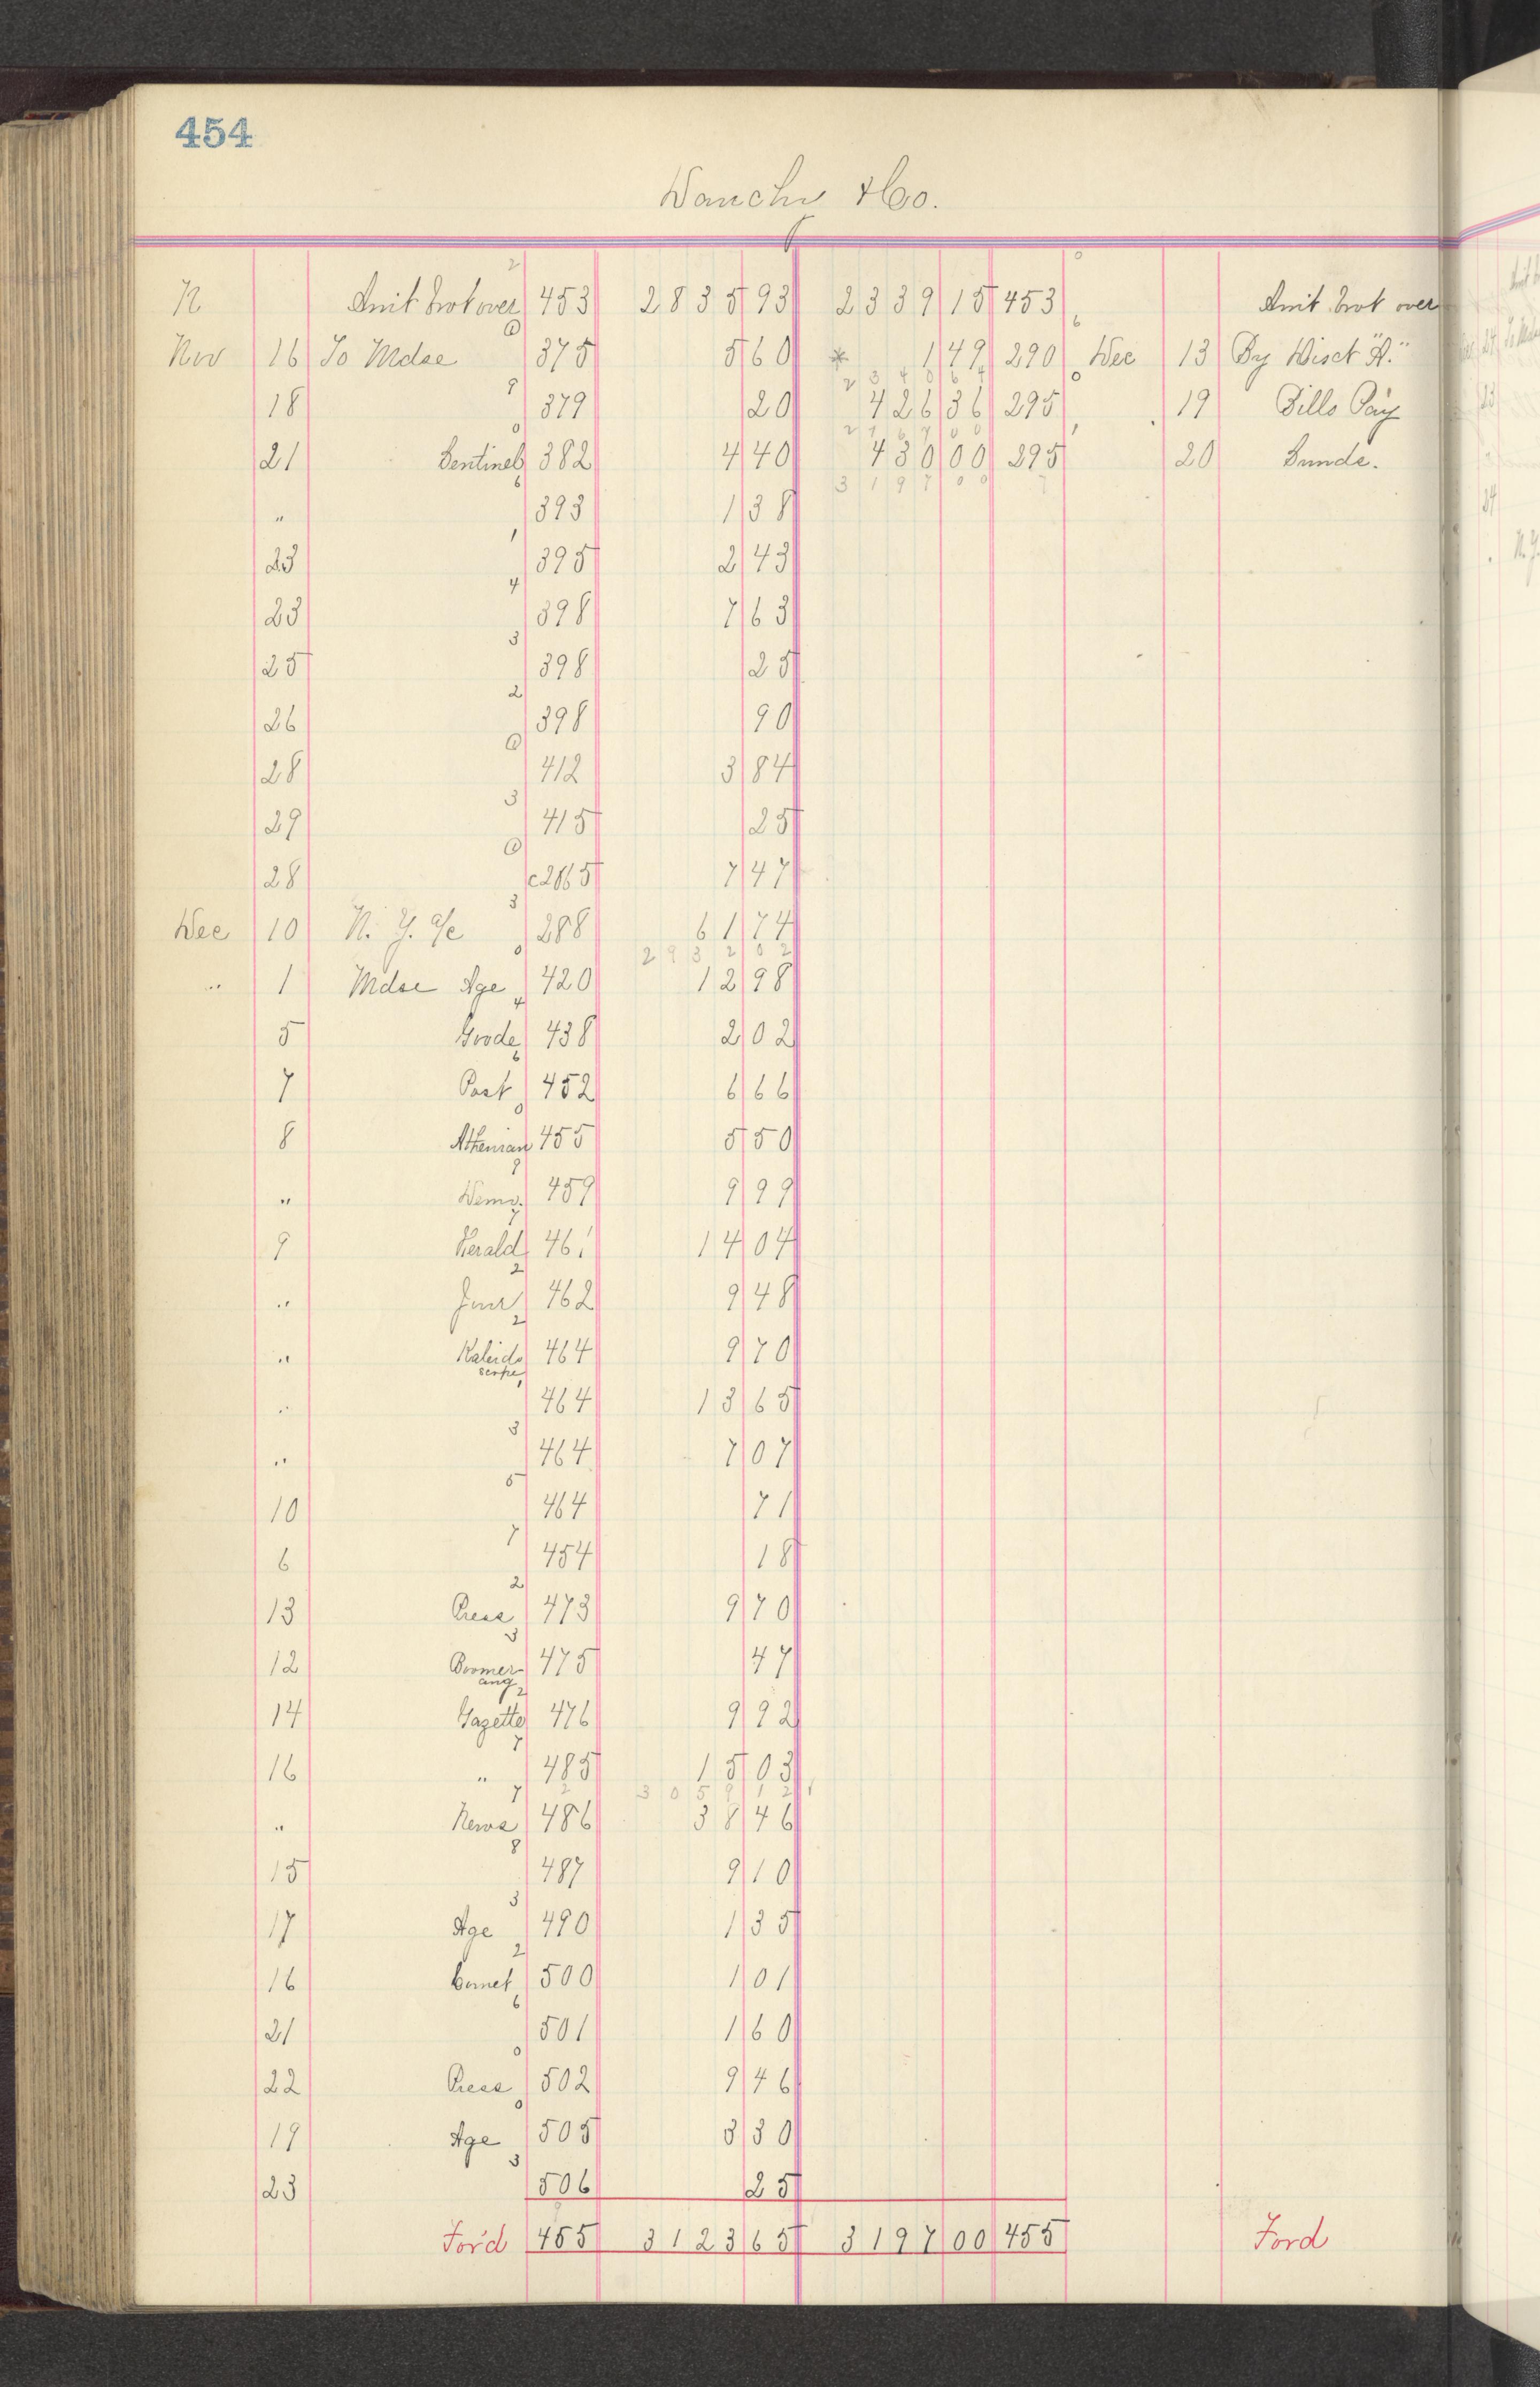 454
& Co.
N Amt brot over 453 2835 93 2339 15 453 Amt brot over
Nov 16 To Mdse 375 5 60 * 1 49 290 Dec 13 By Disct "A."
2 3 4 0 6 4
18 379 20 426 36 295 19 Bills Pay
2 7 6 7 0 0
21 Sentinel 382 4 40 430 00 295 20 Sunds.
3 1 9 7 0 0
" 393 1 38
23 395 2 43
23 398 7 63
25 398 25
26 398 90
28 412 3 84
29 415 25
28 c2865 7 47
Dec 10 N. Y. a/c 288 61 74
2 9 3 2 0 2
" 1 Mdse Age 420 12 98
5 Goods 438 2 02
7 Post 452 6 66
8 Athenian 455 5 50
" Demo. 459 9 99
9 Herald 461 14 04
" Jour 462 9 48
" Kaleido 464 9 70
scope
" 464 13 65
" 464 7 07
10 464 71
6 454 18
13 Press 473 9 70
12 Boomer 475 47
ang
14 Gazette 476 9 92
16 " 485 15 03
3 0 5 9 1 2
" News 486 38 46
15 487 9 10
17 Age 490 1 35
16 Comet 500 1 01
21 501 1 60
22 Press 502 9 46
19 Age 505 3 30
23 506 25
For'd 455 3123 65 3197 00 455 Ford